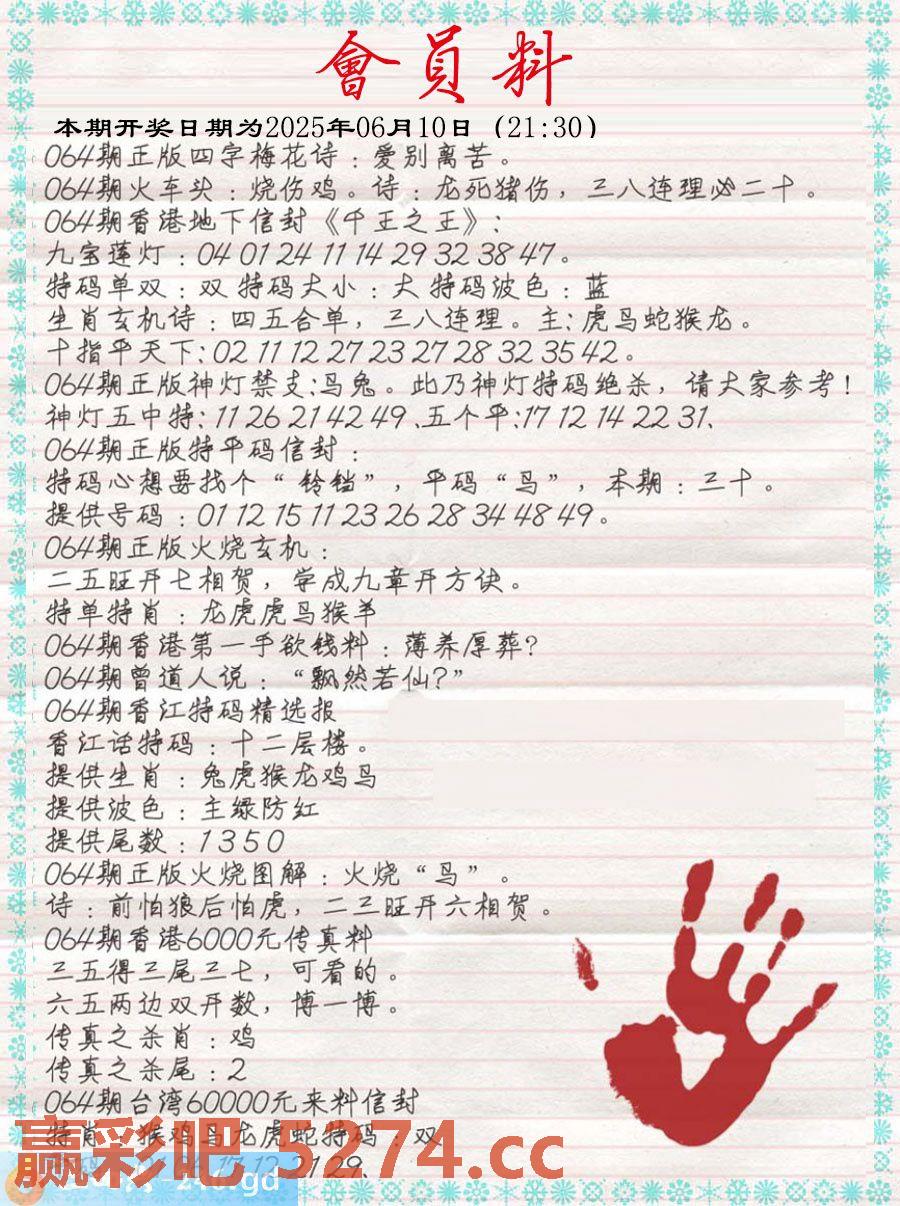 會員料
本期开奖日期为2025年06月10日（21:30）
064期正版四字梅花诗：爱别离苦。
064期火车头：烧伤鸡。诗：龙死猪伤，三八连理必二十。
064期香港地下信封《千王之王》：
九宝莲灯：04 01 24 11 14 29 32 38 47。
特码单双：双 特码大小：大 特码波色：蓝
生肖玄机诗：四五合单，三八连理。主：虎鸟蛇猴龙。
十指平天下：02 11 12 27 23 27 28 32 35 42。
064期正版神灯禁支：鸟兔。此乃神灯特码绝杀，请大家参考！
神灯五中特：11 26 21 42 49、五个平：17 12 14 22 31、
064期正版特平码信封：
特码心想要找个“铃铛”，平码“鸟”，本期：三十。
提供号码：01 12 15 11 23 26 28 34 48 49。
064期正版火烧玄机：
二五旺开七相贺，学成九章开方诀。
特单特肖：龙虎虎鸟猴羊
064期香港第一手欲钱料：薄养厚葬？
064期曾道人说：“飘然若仙？”
064期香江特码精选报
香江话特码：十二层楼。
提供生肖：兔虎猴龙鸡鸟
提供波色：主绿防红
提供尾数：1 3 5 0
064期正版火烧图解：火烧“鸟”。
诗：前怕狼后怕虎，二三旺开六相贺。
064期香港6000元传真料
三五得三尾三七，可看的。
六五两边双开数，博一博。
传真之杀肖：鸡
传真之杀尾：2
064期台湾60000元来料信封
特肖：猴鸡马龙虎蛇特码：双
赢彩吧.5274.cc
17 12 21 29、